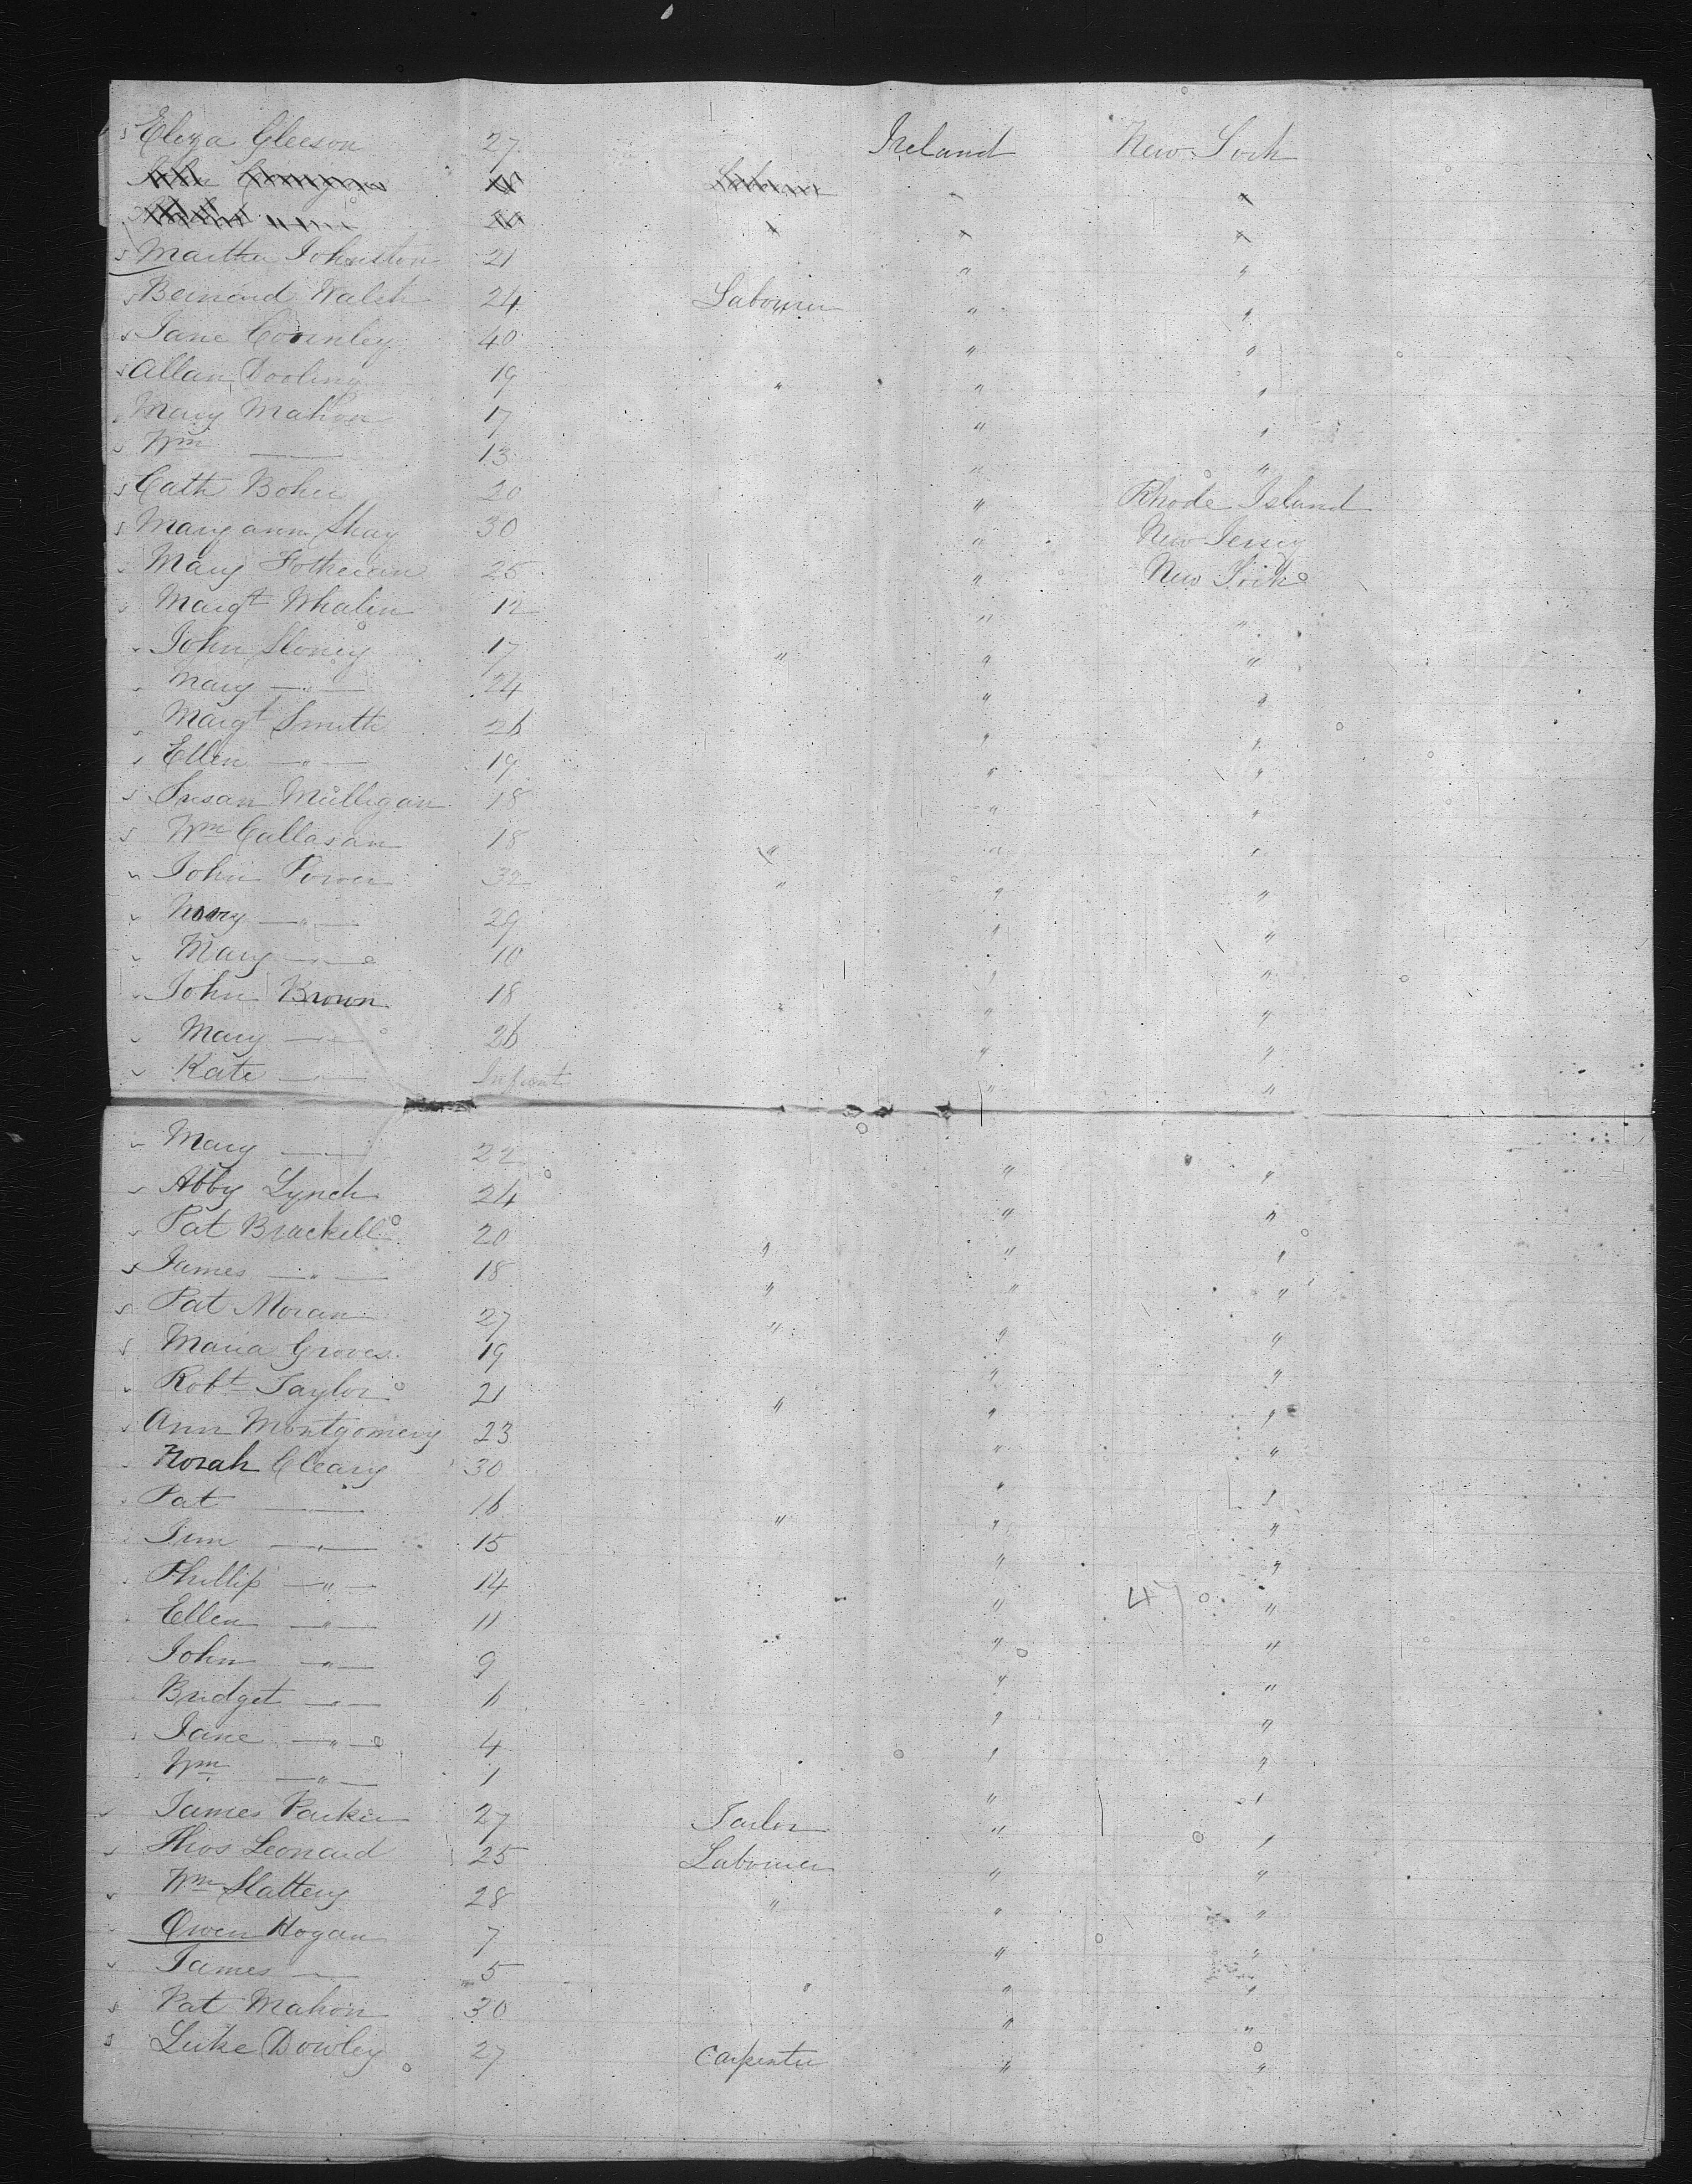 s Eliza Gleeson 27 Ireland New York
s Martha Johnston 21 " "
s Bernard Walsh 24 Labourer " "
s Jane Cormley 40 " "
s Allan Dooling 19 " " "
Mary Mahon 17 " "
Wm — 13 " "
s Cath Boher 20 " Rhode Island
s Mary ann Shay 30 " New Jersey
Mary 25 " New York
s Margt Whalen 12 " "
John Sloney 17 " " "
Mary —"— 24 " "
Margt Smith 26 " "
s Ellen —"— 19 " "
s Susan Mulligan 18 " "
s Wm Callasan 18 " " "
John Power 32 " " "
Nory —"— 29 " "
Mary —"— 10 " "
John Brown 18 " " "
Mary —"— 26 " "
Kate —"— Infant " "
Mary — 22 " "
Abby Lynch 24 " "
Pat Brackell 20 " " "
s James —"— 18 " " "
s Pat Moran 27 " " "
s Maria Groves 19 " "
Robt Taylor 21 " " "
s Ann Montgomery 23 " "
Norah Cleary 30 " "
Pat — 16 " " "
Jim —"— 15 " "
Phillip —"— 14 " "
47
Ellen —"— 11 " "
John —"— 9 " "
Bridget —"— 6 " "
Jane —"— 4 " "
Wm —"— 1 " "
James Parker 27 Tailor " "
s Thos Leonard 25 Labourer " "
Wm Slattery 28 " " "
Owen Hogan 7 " "
James — 5 " "
s Pat Mahon 30 " " "
s Luke Dowley 27 Carpenter " "